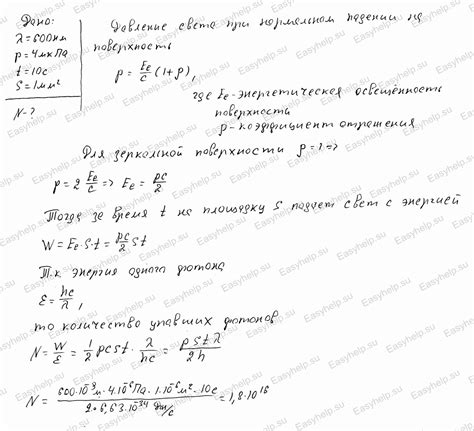 Дано:
λ=600нм
p=4мкПа
t=10с
S=1мм²
N-?
Давление света при нормальном падении на
поверхность
p = Ee/c (1+ρ),
где Ee-энергетическая освещённость
поверхности
ρ-коэффициент отражения
Для зеркальной поверхности ρ=1 =>
p = 2 Ee/c => Ee = pc/2
Тогда за время t на площадку S падает свет с энергией
W = Ee·S·t = pc/2 St
Т.к энергия одного фотона
ε = hc/λ,
то количество упавших фотонов
N = W/ε = 1/2 pcSt · λ/hc = pStλ/2h
N = 600·10⁻⁹м·4·10⁻⁶Па·1·10⁻⁶м²·10с / 2·6,63·10⁻³⁴ Дж/с = 1,8·10¹⁶
Easyhelp.su